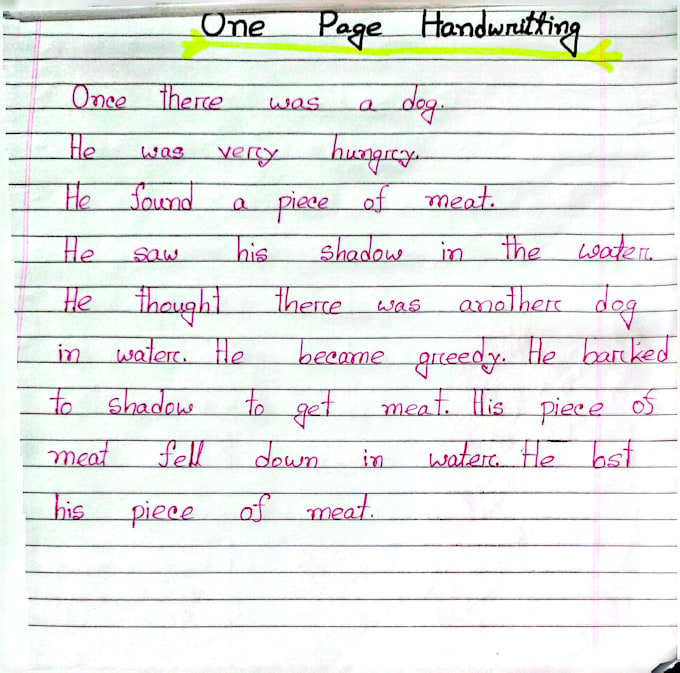 One Page Handwritting
Once there was a dog.
He was very hungry.
He found a piece of meat.
He saw his shadow in the water.
He thought there was another dog
in water. He became greedy. He barked
to shadow to get meat. His piece of
meat fell down in water. He lost
his piece of meat.